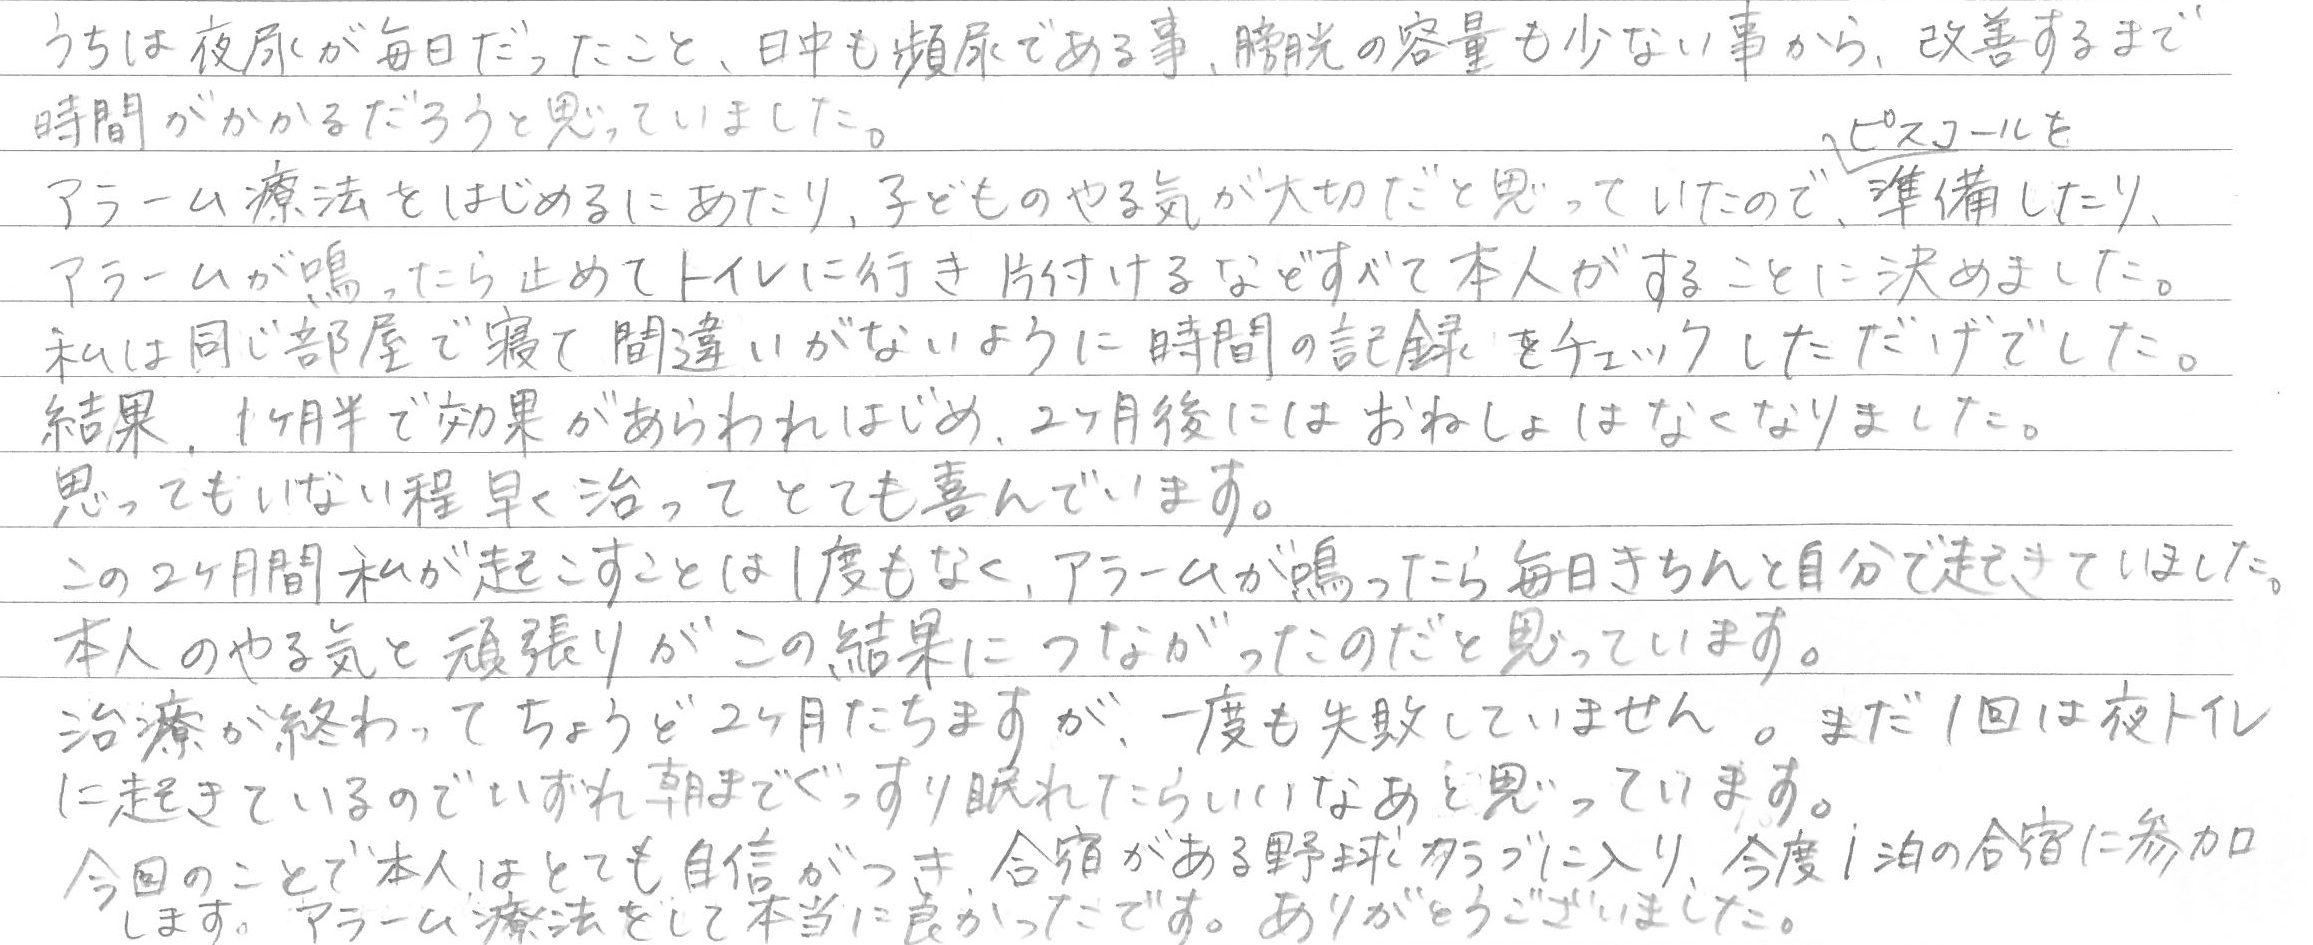 うちは夜尿が毎日だったこと、日中も頻尿である事、膀胱の容量も少ない事から、改善するまで
時間がかかるだろうと思っていました。
ピスコールを
アラーム療法をはじめるにあたり、子どものやる気が大切だと思っていたので、準備したり、
アラームが鳴ったら止めてトイレに行き片付けるなどすべて本人がすることに決めました。
私は同じ部屋で寝て間違いがないように時間の記録をチェックしただけでした。
結果、1ヶ月半で効果があらわれはじめ、2ヶ月後にはおねしょはなくなりました。
思ってもいない程早く治ってとても喜んでいます。
この2ヶ月間私が起こすことは1度もなく、アラームが鳴ったら毎日きちんと自分で起きていました。
本人のやる気と頑張りがこの結果につながったのだと思っています。
治療が終わってちょうど2ヶ月たちますが、一度も失敗していません。まだ1回は夜トイレ
に起きているのでいずれ朝までぐっすり眠れたらいいなあと思っています。
今回のことで本人はとても自信がつき、合宿がある野球クラブに入り、今度1泊の合宿に参加
します。アラーム療法をして本当に良かったです。ありがとうございました。